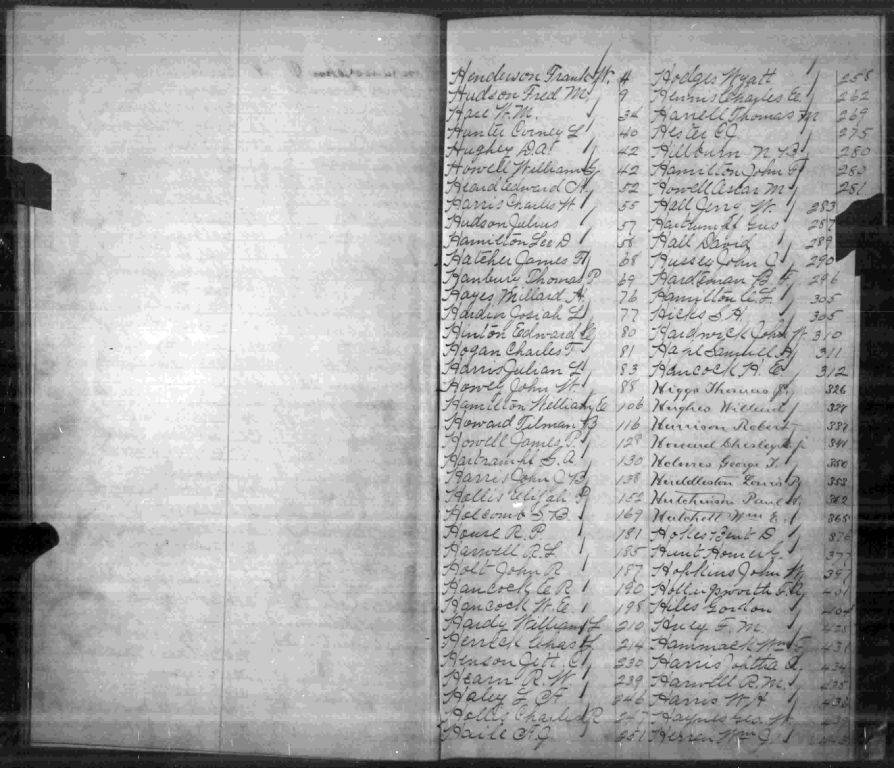 Henderson Frank W. 4 Hodges Wyatt 258
Hudson Fred M. 9 Hennis Charles E 262
Hale W. M. 34 Harrell Thomas M 269
Hunter Corney L 40 Hester C J 275
Hughey D. A. 42 Hilburn N B 280
Howell William G 42 Hamilton John F 280
Heard Edward A 52 Howell Oscar M 281
Harris Charles W 55 Hall Jerry W. 283
Hudson Julius 57 Hartrampf Gus 287
Hamilton Lee D 58 Hall David 289
Hatcher James F 68 Hussey John J 290
Hanbury Thomas P 69 Hardeman B F 296
Hayes Millard A. 76 Hamilton C. L. 305
Hardin Josiah L 77 Hicks S H 305
Hinton Edward 80 Hardwick John W 310
Hogan Charles T 81 311
Harris Julian L 83 Hancock H. E. 312
Howell John W 88 Higgs Thomas 326
Hamilton William E 106 Hughes Willard 327
Howard Tilman B 116 Harrison Robert 337
Howell James P. 128 Howard Chesley 344
Hartrampf G. A. 130 Holmes George T. 350
Harris John C B. 138 Huddleston Louis 353
Hollis Elijah P 152 Hutchinson Paul 362
Holcomb S. B. 169 Hatchett Wm E. 365
House R. P. 181 D. 376
Harwell R. L. 185 Hunt Homer 377
Holt John R. 187 Hopkins John W 397
Hancock E. R. 190 Hollingsworth 401
Hancock W. E. 198 Hiles Gordon 404
Hardy William L 210 Huey F. M. 425
Herrick Chas 214 Hammack Wm 431
Henson Jett C 230 Harris 434
Hearn R. W 239 Harwell R. M. 435
Haley L. C. 246 Harris W. H 436
Hollis Charles R 247 Haynes Geo. W. 437
Haile 251 Herren Wm J